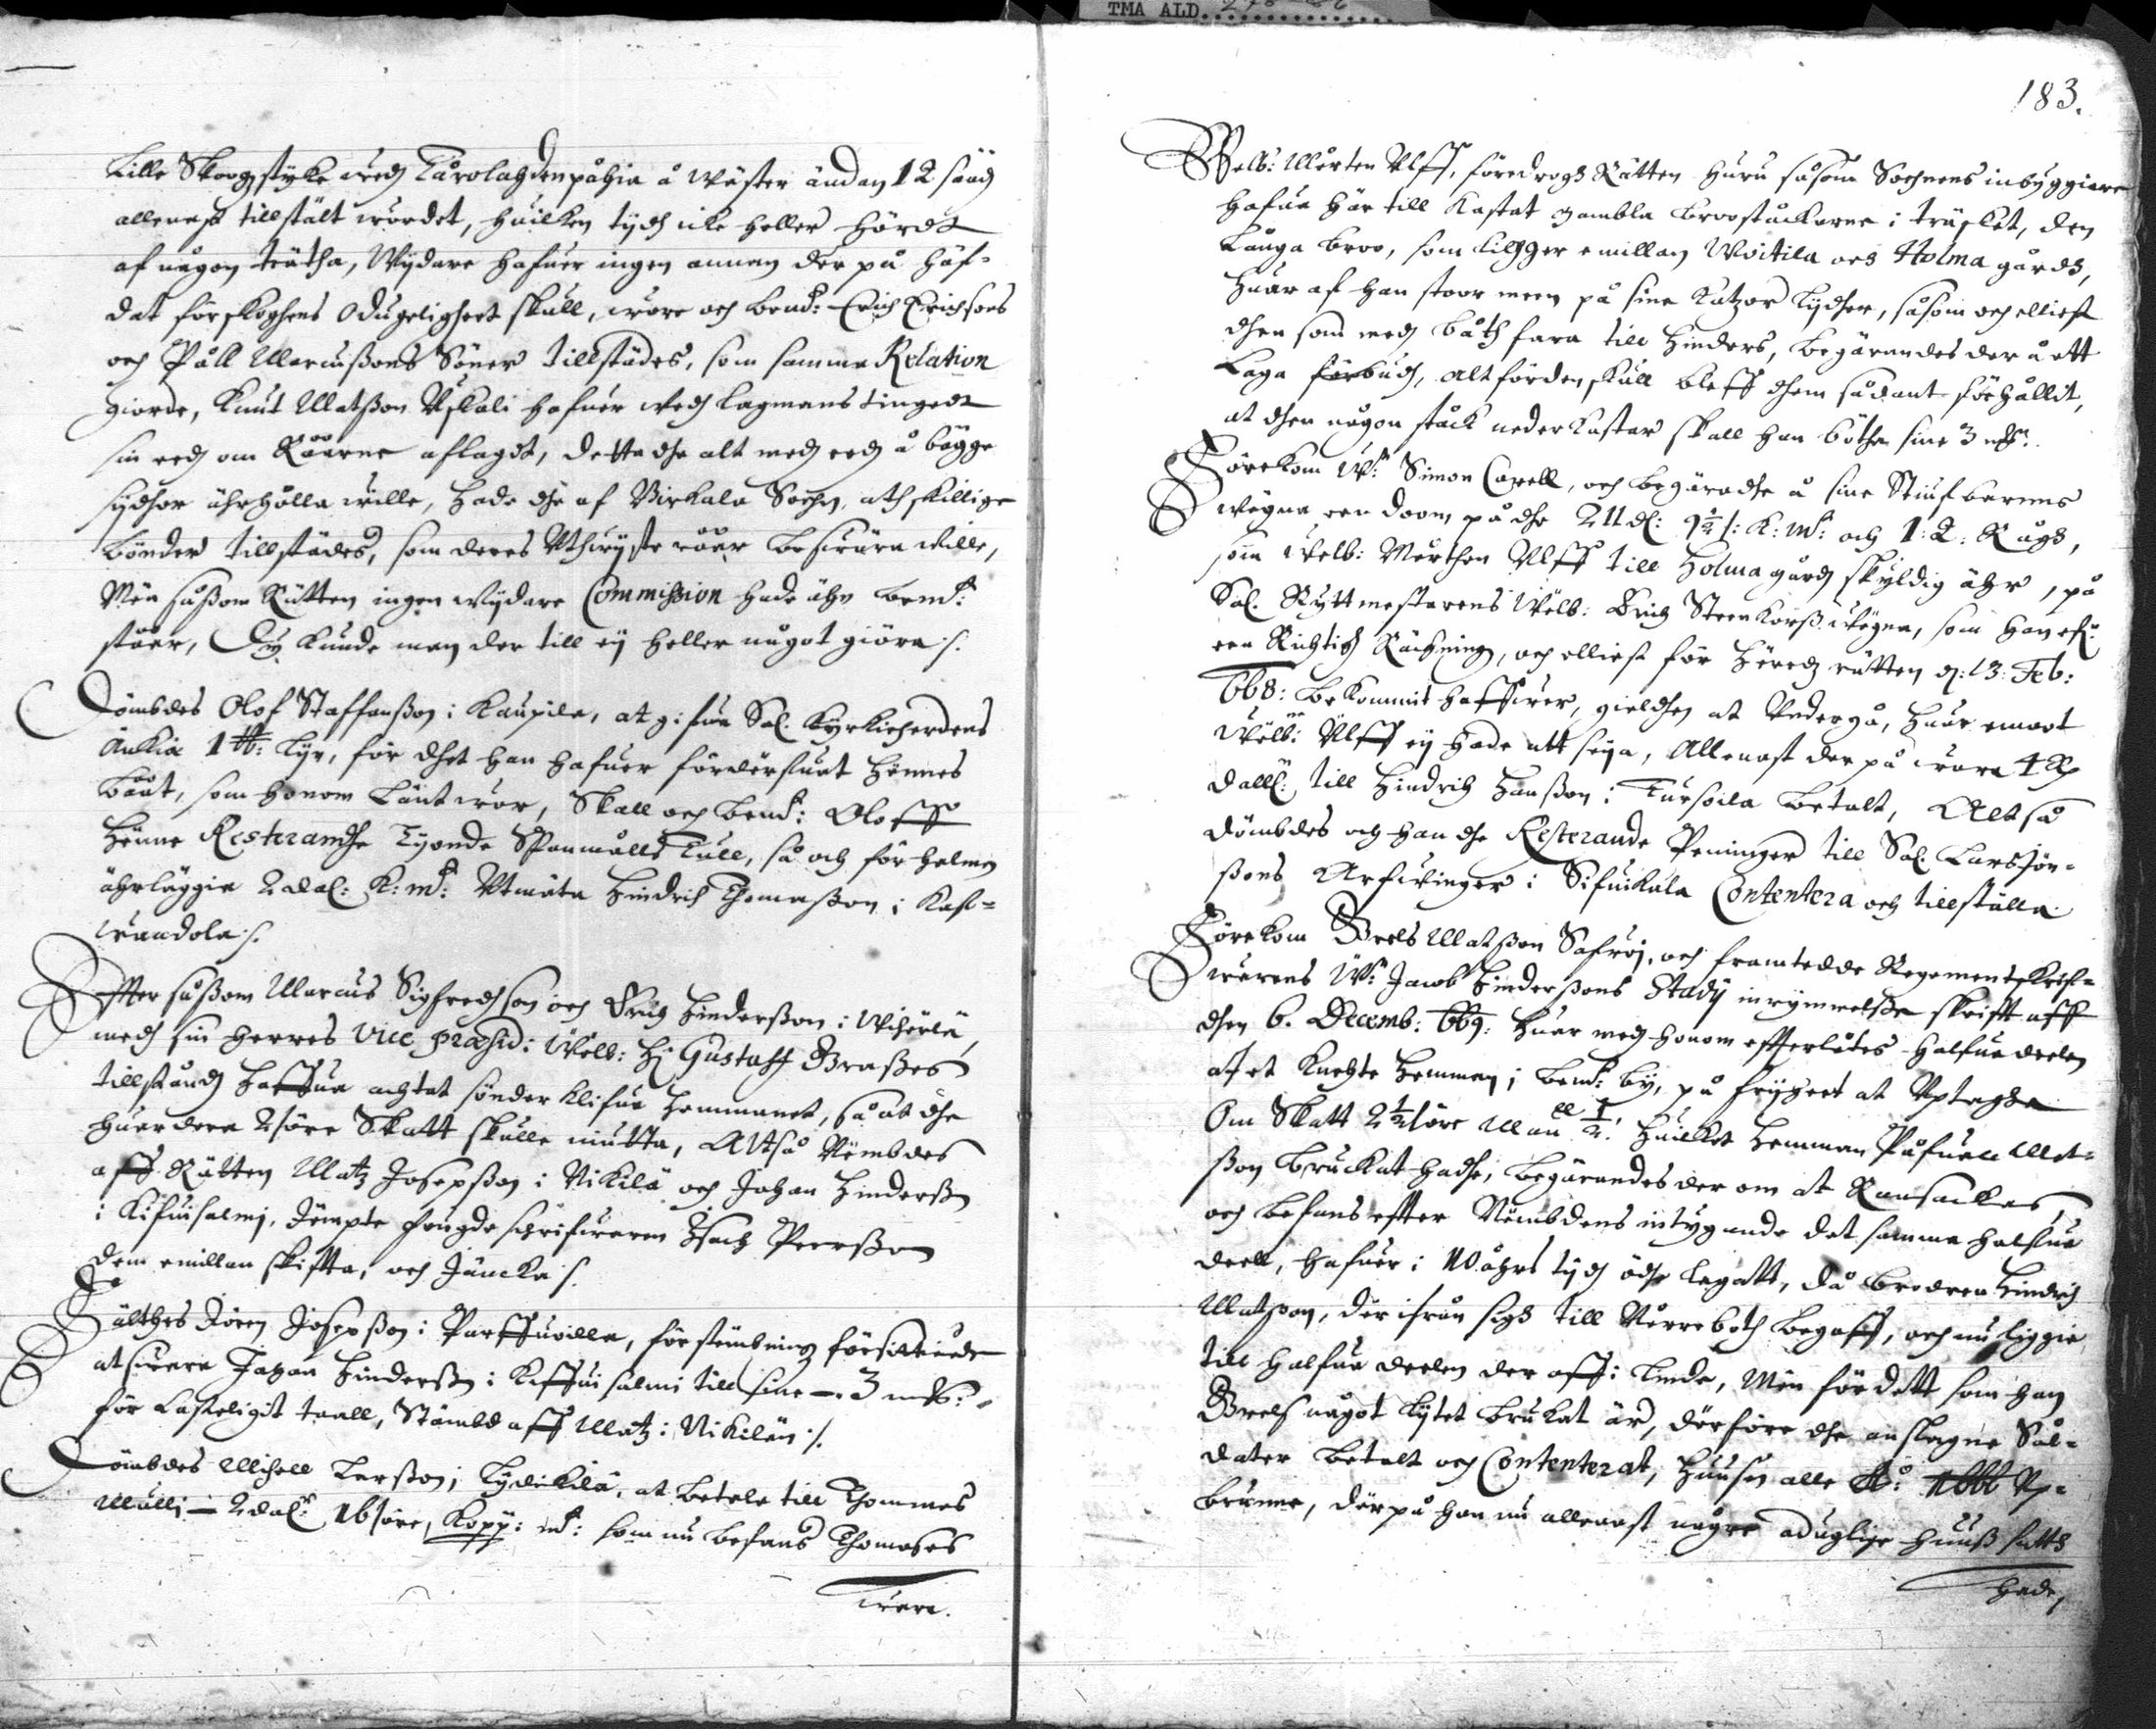 TMA ALD.
Lille Skoogzstycke wedh Karolahdenpohia å wäster ändan 12 såådh
allenast tillstält wordet, huilken tydh icke heller hördt
af någon trätha, Wydare hafuer ingen annan der på häf-
dat för skoghens Odugeligheet skull, wore och bemd: Erich Erichsons
och Påll Marcußons Söner tillstädes, som samma Relation
giorde, Knut Matßon Vskali hafuer wedh Lagmans tinget
sin eedh om Råårne aflagdt, detta dhe alt medh eedh å bägge
sydhor ährhålla wille, hade dhe af Birkala Sochn, athskillige
bönder tillstädes, som deres Vthwyste råår beswära wille,
Men såßom Rätten ingen wydare Commission hade ähn bemdt
ståår, Ty kunde man der till ey heller något giöra ./.
Dömbdes Olof Staffanßon i Kaupila, at gifua Sal. Kyrkieherdens
Änkia 1 tt: lijn, för dhet han hafuer förderfuat hennes
bååt, som honom Läntt war, Skall och bemd: Oloff
henne Resterandhe Tyonde Spanmåls Tull, så och för halmen
ährläggia 2 dal: K: mt: Vtmäta Hindrich Thomaßon i Kas-
wandola ./.
Effter såßom Marcus Sigfredhson och Erich Hinderßon i Wiherlä,
medh sin herres Vice Præsid: Welb: H: Gustaff Graßes
tillståndh haffua achtat sönder klifua hemmanet, så at dhe
huardera 2 öre Skatt skulle niutta, Altså Nembdes
aff Rätten Matz Josepßon i Nikilä och Johan Hinderßon
i Kifuisalmj, Jempte fougde schrifwaren Isach Peerßon
dem emillan skiffta, och Jämcka ./.
Fälthes Jören Josepßon i Parffuoilla, för stembning försittiande
at swara Johan Hinderßon i Kiffuisalmi till sine — 3 mk:
för Lasteligit taall, Stämbd aff Matz i Nikilän ./.
Dömbdes Michell Larßon i Lydikilä, at betala till Thommas
Mulli — 2 dal: 16 öre, Kopp: mt: som nu befans Thomases
wara.
183.
Welb: Mårten Vlff, föredrogh Rätten huru såsom Sochnens inbyggiare
hafua här till Kastat gambla broostäckarne i träsket, den
Långa broo, som ligger emillan Woitila och Holma gårdh,
huar af han stoor meen på sine Katzor lydher, såsom och elliest
dhen som medh båth fara till hinders, begärandes der å ett
Laga förbudh, alt förden skull bleff dhem sådant förhållit,
at dhen någon stäck neder kastar skall han böthe sine 3 mk:
Förekom W: Simon Carell, och begäradhe å sine Stiufbarns
wägna een doom på dhe 211 dl: 9½ /: K: mt: och 1: R: Rågh,
som Welb: Mårthen Vlff till Holma gårdh skyldig ähr, på
Sal. Ryttmestarens Welb: Erich Steenkorß wägna, som han eft:
een Richtigh Rächning, och elliest för Häredz rätten d: 13: Feb:
668: bekommit haffwer, gieldhen at Vndergå, huar emoot
Welb: Vlff ey hade att seija, Allenast der på ware 4 R
dall: till Hindrich Hanßon i Kursoila betalt, Altså
dömbdes och han dhe Resterande Peninger till Sal. Lars Jön-
ßons Arfwinger i Sifuikala Contentera och tillställa
Förekom Greels Matßon Safroj, och framtedde Regementzskrif-
warens W: Jacob Hinderßons Stadij inrymmelße skrifft aff
dhen 6. Decemb: 669: huar medh honom effterlåtes halfua deelen
af et Knechte hemman i bemt: by, på fryheet at Vptagha
Om Skatt 2½ öre Mantall ½: huilket hemman Påfuall Mat-
ßon bruckat hadhe, begärandes der om at Ransackas,
och befans effter Nembdens intygande det samma halfua
deell, hafuer i 10 åhrs tydh ödhe legatt, då brodren Hindrich
Matßon, der ifrån sigh till Norreboth begaff, och nu liggia
till halfua deelen der aff i linda, Men för dett som han
Greels något lytet brukat är, derföre dhe anslagne Sol-
dater betalt och Contenterat, huusen alle A:o 1666 Vp-
brunne, der på han nu allenast någre odugliga huuß satth
hade,